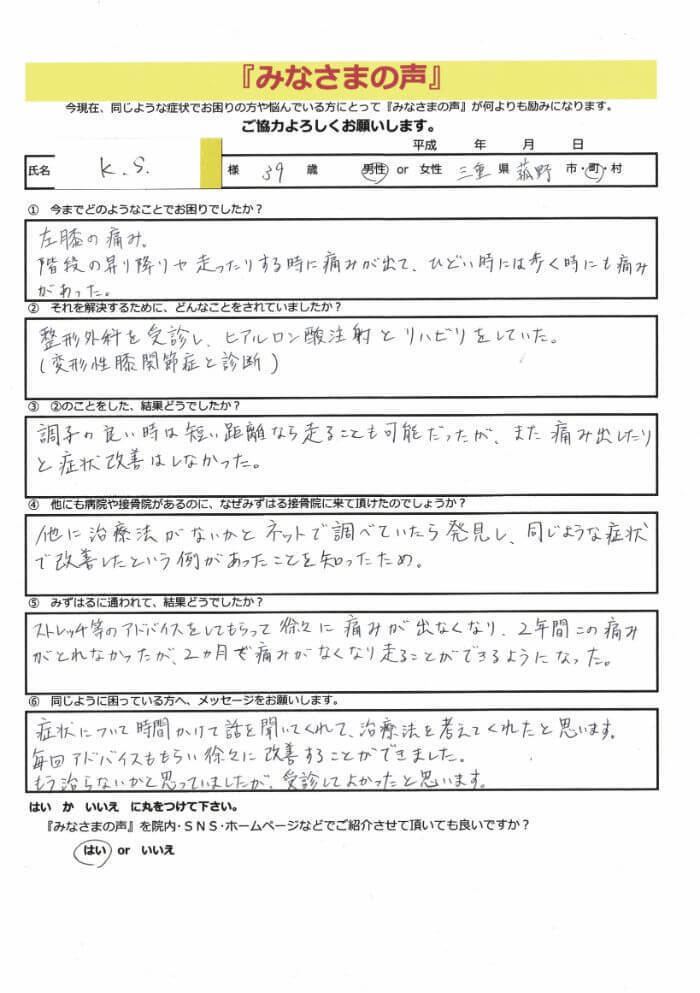 『みなさまの声』
今現在、同じような症状でお困りの方や悩んでいる方にとって『みなさまの声』が何よりも励みになります。
ご協力よろしくお願いします。
平成　年　月　日
氏名 K.S. 様 39 歳 男性 or 女性 三重 県 菰野 市・町・村
① 今までどのようなことでお困りでしたか？
左膝の痛み。
階段の昇り降りや走ったりする時に痛みが出て、ひどい時には歩く時にも痛み
があった。
② それを解決するために、どんなことをされていましたか？
整形外科を受診し、ヒアルロン酸注射とリハビリをしていた。
(変形性膝関節症と診断)
③ ②のことをした、結果どうでしたか？
調子の良い時は短い距離なら走ることも可能だったが、また痛み出したり
と症状改善はしなかった。
④ 他にも病院や接骨院があるのに、なぜみずはる接骨院に来て頂けたのでしょうか？
他に治療法がないかとネットで調べていたら発見し、同じような症状
で改善したという例があったことを知ったため。
⑤ みずはるに通われて、結果どうでしたか？
ストレッチ等のアドバイスをしてもらって徐々に痛みが出なくなり、2年間この痛み
がとれなかったが、2ヵ月で痛みがなくなり走ることができるようになった。
⑥ 同じように困っている方へ、メッセージをお願いします。
症状について時間かけて話を聞いてくれて、治療法を考えてくれたと思います。
毎回アドバイスももらい徐々に改善することができました。
もう治らないかと思っていましたが、受診してよかったと思います。
はい か いいえ に丸をつけて下さい。
『みなさまの声』を院内・ＳＮＳ・ホームページなどでご紹介させて頂いても良いですか？
はい or いいえ